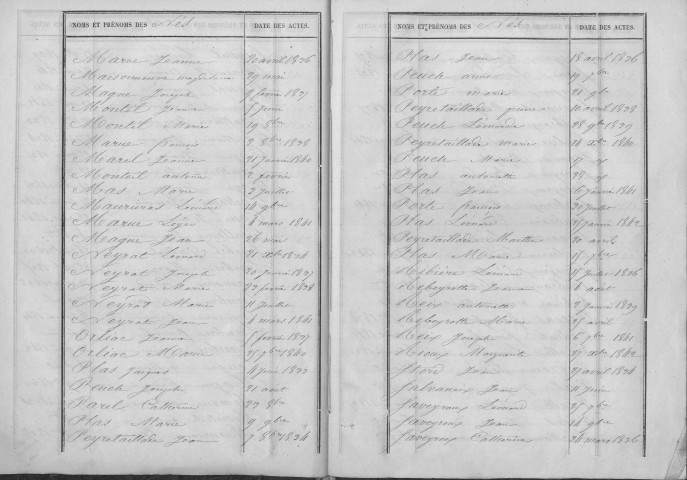 NOMS ET PRÉNOMS DES Nés DATE DES ACTES.
Marue Jeanne 20 avril 1836
Maisonneuve magdeleine 29 mai
Magne Joseph 9 février 1837
Monteil Jeanne 1 juin
Monteil Marie 19 8bre
Marue françois 2 8bre 1838
Marel Jeanne 21 janvier 1840
Monteil antoine 2 février
Mas Marie 2 juillet
Maurieras Léonard 14 9bre
Marue Léger 4 mars 1841
Magne Jean 26 mai
Neyrat Léonard 21 Xbre
Neyrat Joseph 20 janvier 1837
Neyrat Marie 22 février 1838
Neyrat Marie 11 juillet
Neyrat Jean 4 mars 1841
Orliac Jeanne 1 février 1837
Orliac Marie 25 7bre 1840
Plas Jacques 4 juin 1833
Peuch Joseph 21 aout
Parel Catherine 23 8bre
Plas Marie 9 9bre
Peyretaillade Jean 7 8bre 1834
NOMS ET PRÉNOMS DES Nés DATE DES ACTES.
Plas Jean 18 avril 1836
Peuch anne 19 7bre
Porte marie 21 9bre
Peyretaillade pierre 10 avril 1838
Peuch Léonarde 28 9bre 1839
Peyretaillade marie 16 Xbre 1840
Peuch Marie 17
Plas antoinette 28
Plas Jean 6 février 1841
Porte françois 20 juillet
Plas Léonard 25 janvier 1842
Peyretaillade Marthe 20 avril
Plas Marie 15 7bre
Ribière Léonard 15 juillet 1836
Rebeyrotte Jeanne 4 aout
Reix antoinette 2 janvier 1839
Rebeyrotte Marie 25 avril
Reix Joseph 6 9bre 1841
Rioux Marguerite 27 Xbre 1842
Jean 27 avril 1834
Salvaneix Jean 11 juin
Saveyroux Léonard 25 9bre
Saveyroux Jean 14 9bre
Saveyroux Catherine 24 mars 1836